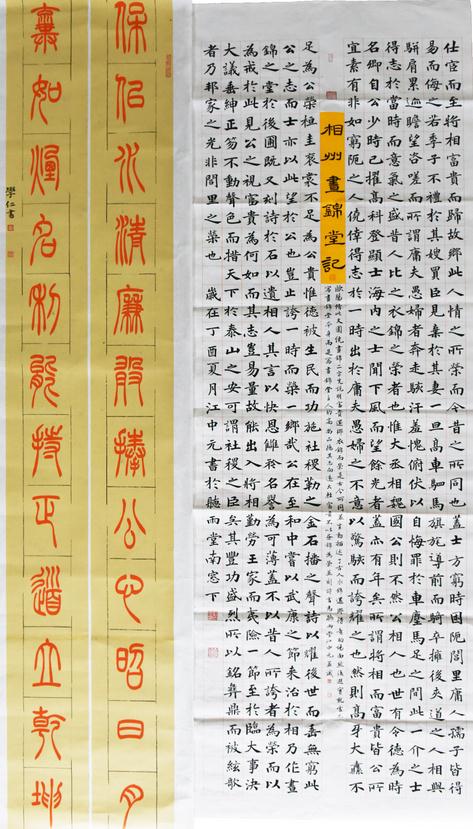 仕宦而至將相富貴而歸故鄉此人情之所榮而今昔之所同也蓋士方窮時困阨閭里庸人孺子皆得
易而侮之若季子不禮於其嫂買臣見棄於其妻一旦高車駟馬旗旄導前而騎卒擁後夾道之人相與
駢肩累迹瞻望咨嗟而所謂庸夫愚婦者奔走駭汗羞愧俯伏以自悔罪於車塵馬足之間此一介之士
得志於當時而意氣之盛昔人比之衣錦之榮者也惟大丞相魏國公則不然公相人也世有令德為時
名卿自公少時已擢高科登顯士海內之士聞下風而望餘光者蓋亦有年矣所謂將相而富貴皆公所
宜素有非如窮阨之人僥倖得志於一時出於庸夫愚婦之不意以驚駭而誇耀之也然則高牙大纛不
相州晝錦堂記
足為公榮桓圭袞裳不足為公貴惟德被生民而功施社稷勒之金石播之聲詩以耀後世而垂無窮此
公之志而士亦以此望於公也豈止誇一時而榮一鄉哉公在至和中嘗以武康之節來治於相乃作晝
錦之堂於後圃既又刻詩於石以遺相人其言以快恩讎矜名譽為可薄蓋不以昔人所誇者為榮而以
為戒於此見公之視富貴為何如而其志豈易量故能出入將相勤勞王家而夷險一節至於臨大事決
大議垂紳正笏不動聲色而措天下於泰山之安可謂社稷之臣矣其豐功盛烈所以銘彝鼎而被絃歌
者乃邦家之光非閭里之榮也 歲在丁酉夏月江中元書於聽雨堂南窗下
保似冰清廉敢捧公心昭日月
棄如煙名利能持正道立乾坤
學仁書